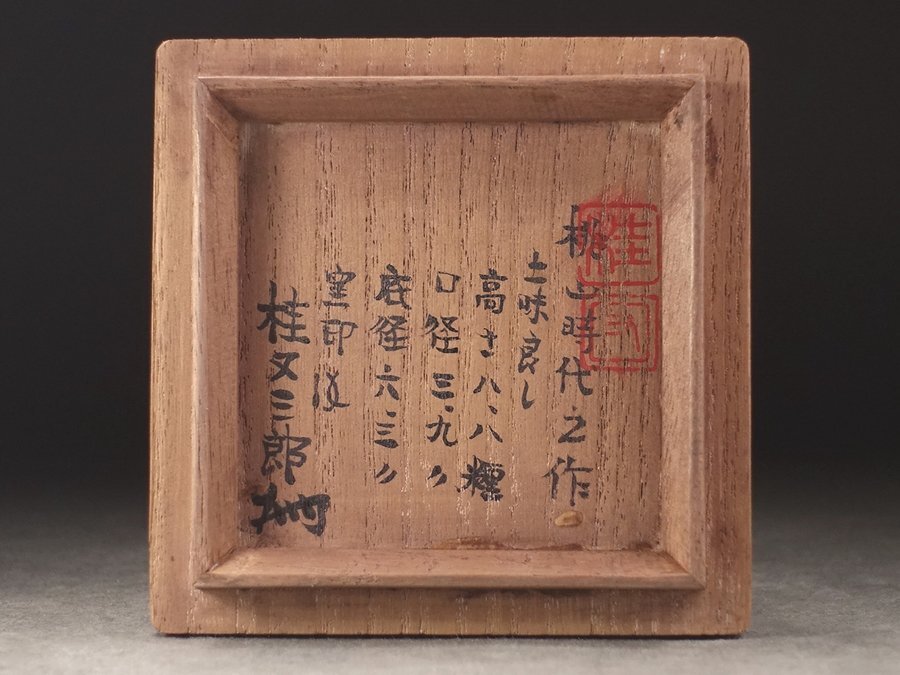 桃山時代之作
土味良し
高さ八、八糎
口径三、九〃
底径六、三〃
窯印
桂又三郎